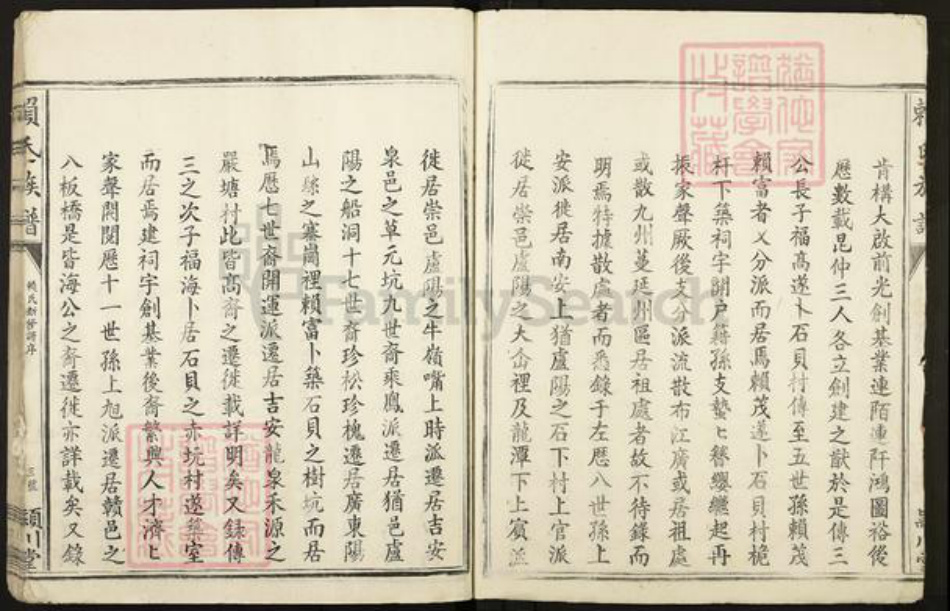 肯構大啟前光創基業連陌連阡鴻圖裕後
歷數載昆仲三人各立創建之猷於是傳三
公長子福高遂卜石貝村傳至五世孫賴茂
賴富者又分派而居焉賴茂遂卜石貝村桅
杆下築祠宇開戶籍孫支蟄匕簪纓繼起再
振家聲厥後支分派流散布江廣或居祖處
或散九州蔓延州區居祖處者故不待錄而
明焉特據散處者而悉錄于左歷八世孫上
安派徙居南安上猶盧陽之石下村上官派
徙居崇邑盧陽之大峹裡及龍潭下上賓派
徙居崇邑盧陽之牛嶺嘴上時派遷居吉安
泉邑之草元坑九世裔乘鳳派遷居猶邑盧
陽之船洞十七世裔珍松珍槐遷居廣東陽
山縣之寨崗裡賴富卜築石貝之樹坑而居
焉歷七世裔開運派遷居吉安龍泉禾源之
嚴塘村此皆高裔之遷徙載詳明矣又錄傳
三之次子福海卜居石貝之赤坑村遂築室
而居焉建祠宇創基業後裔繁興人才濟匕
家聲閥閱歷十一世孫上旭派遷居贛邑之
八板橋是皆海公之裔遷徙亦詳載矣又錄
賴氏族譜
賴氏新修譜序
三號
潁川堂
FamilySearch